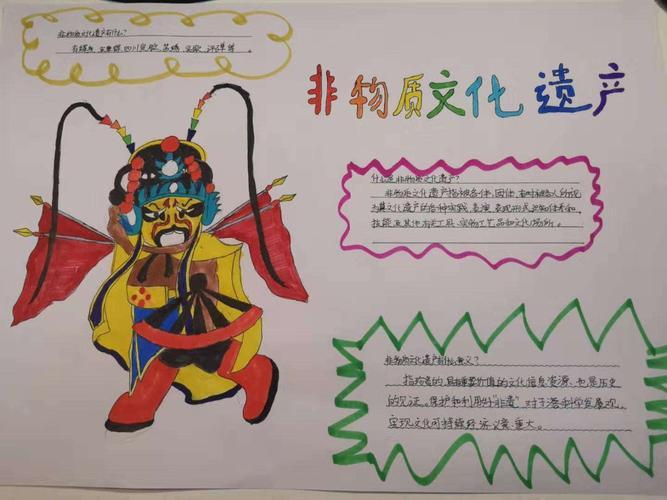 非物质文化遗产有什么？
有
非物质文化遗产
什么是非物质文化遗产？
非物质文化遗产指被各群体、团体、有时为个人所视
为其文化遗产的各种实践、表演、表现形式、知识体系和
技能及其他有关工具、实物、工艺品和文化场所。
非物质文化遗产有什么意义？
指珍贵的、具有重要价值的文化信息资源、也是历史
的见证。保护和利用好“非遗”对于落实科学发展观、
实现文化可持续 意义重大。